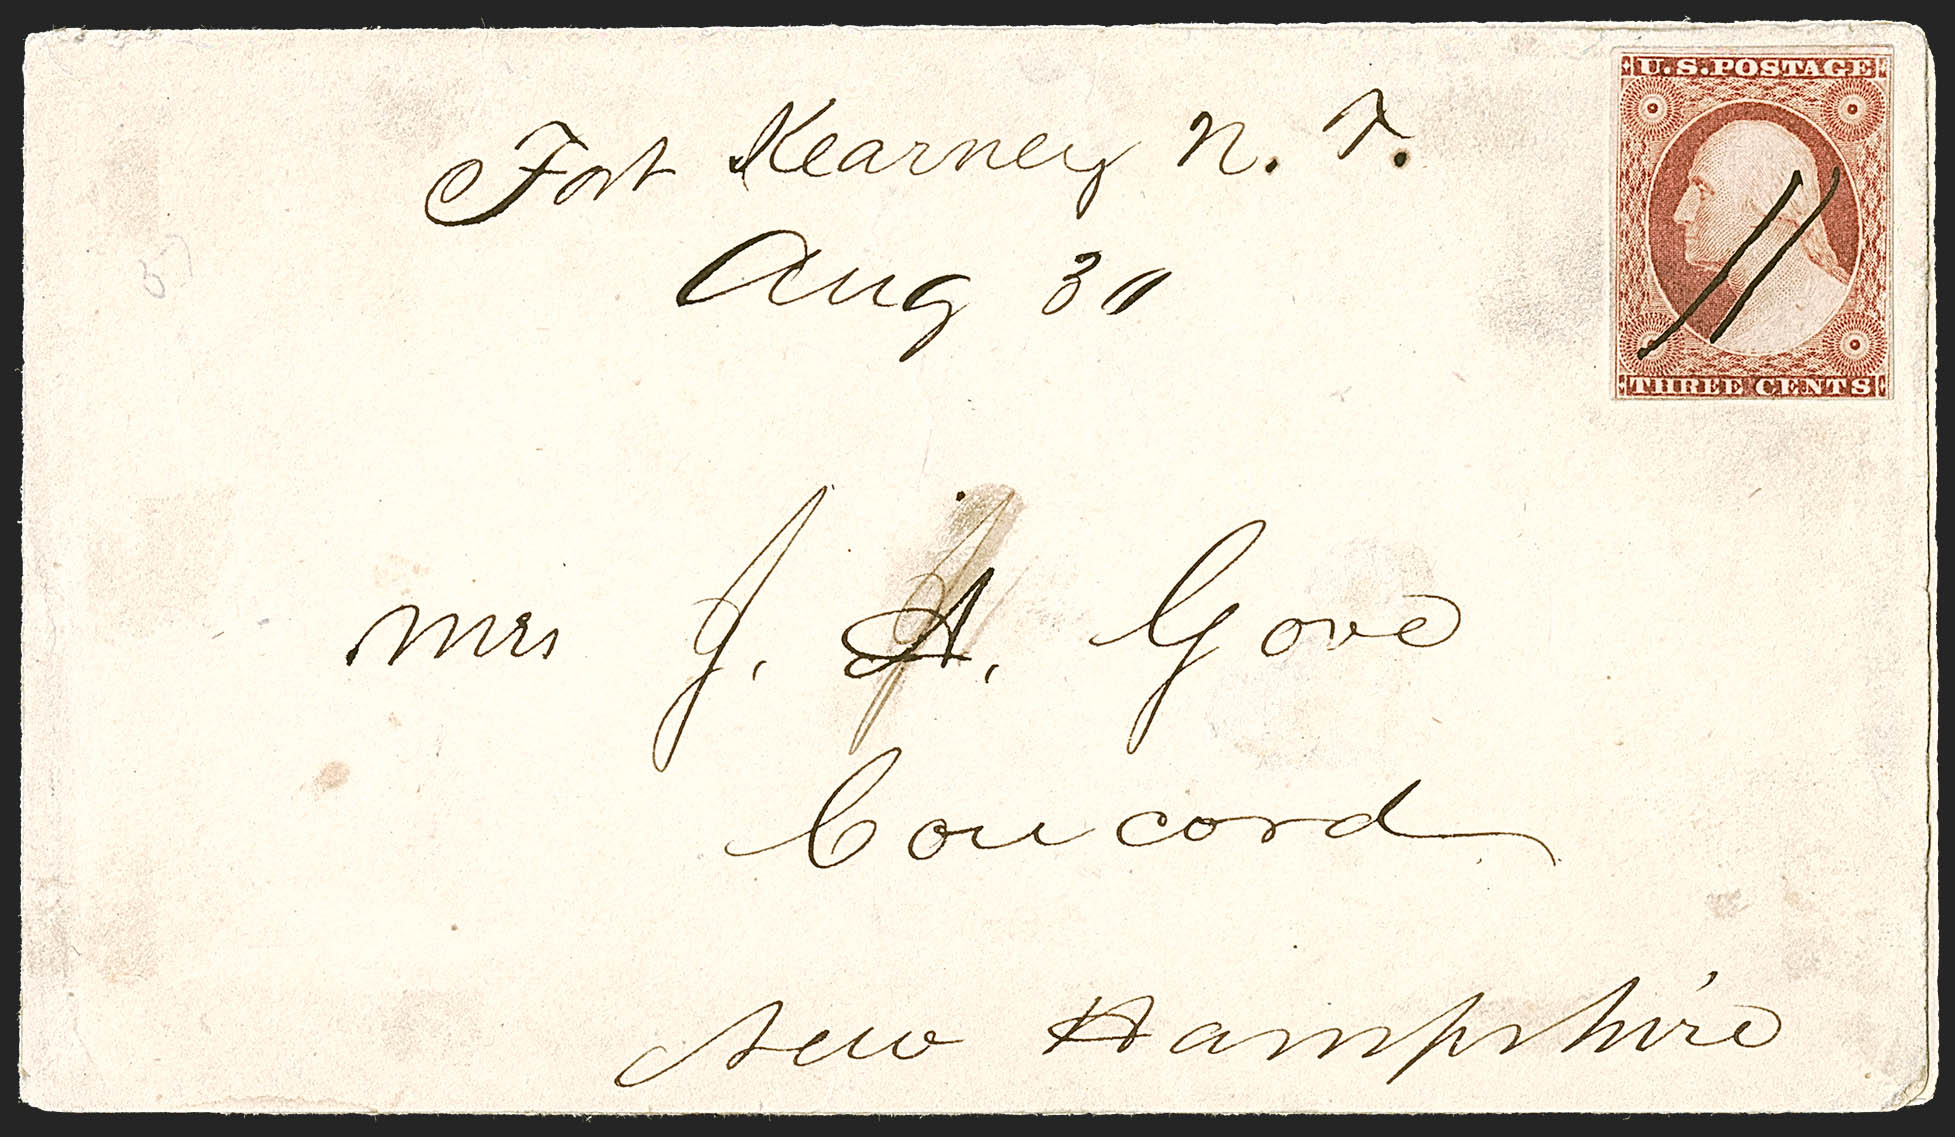 U.S. POSTAGE
THREE CENTS
Fort Kearney N. T.
Aug 30
Mrs J. A. Gove
Concord
New Hampshire